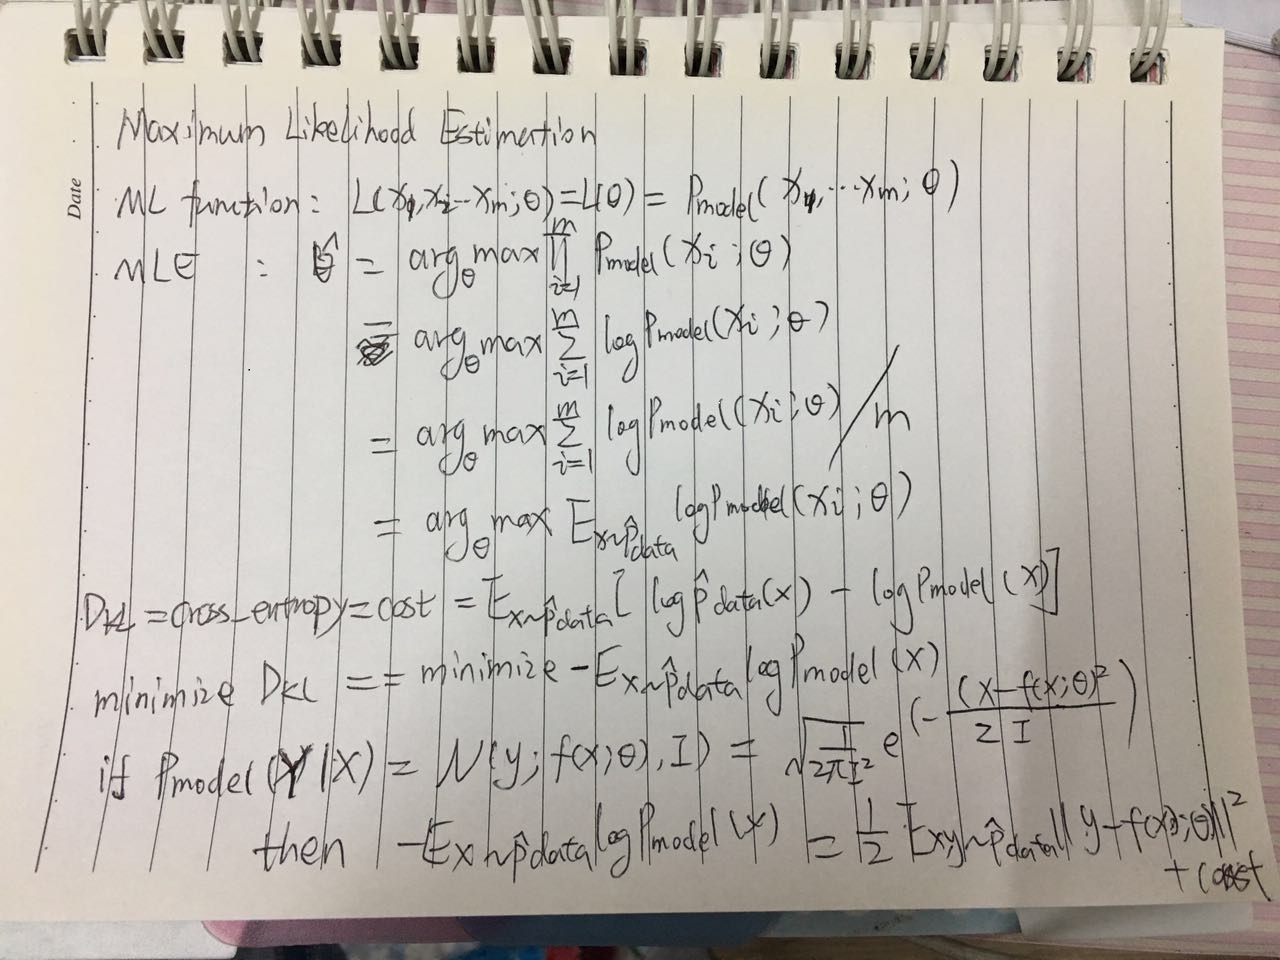 Date
Maximum Likelihood Estimation
ML function: L(x₁,x₂...xm;θ)=L(θ) = Pmodel(x₁,...xm;θ)
MLE : θ̂ = arg_θ max ∏_{i=1}^{m} Pmodel(xi;θ)
= arg_θ max ∑_{i=1}^{m} logPmodel(xi;θ)
= arg_θ max ∑_{i=1}^{m} logPmodel(xi;θ) / m
= arg_θ max E_{x~p̂data} logPmodel(xi;θ)
DKL = cross_entropy = cost = E_{x~p̂data}[log p̂data(x) - logPmodel(x)]
minimize DKL == minimize -E_{x~p̂data} logPmodel(x)
if Pmodel(Y|X) = N(y; f(x;θ), I) = √(1/2πI²) e^(-(x-f(x;θ)²/2I)
then -E_{x~p̂data} logPmodel(x) = 1/2 E_{xy~p̂data}||y-f(x;θ)||²
+ const